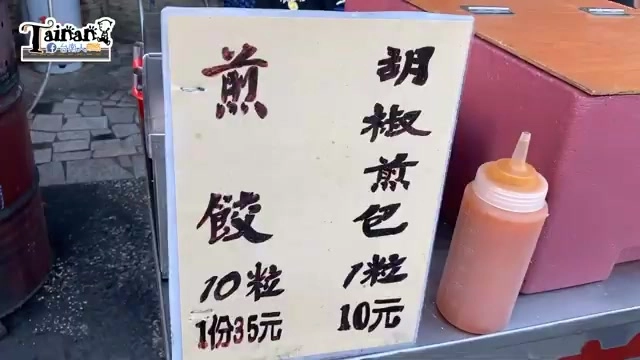 Tainan
台南大
胡椒煎包
1粒
10元
煎餃
10粒
1份35元